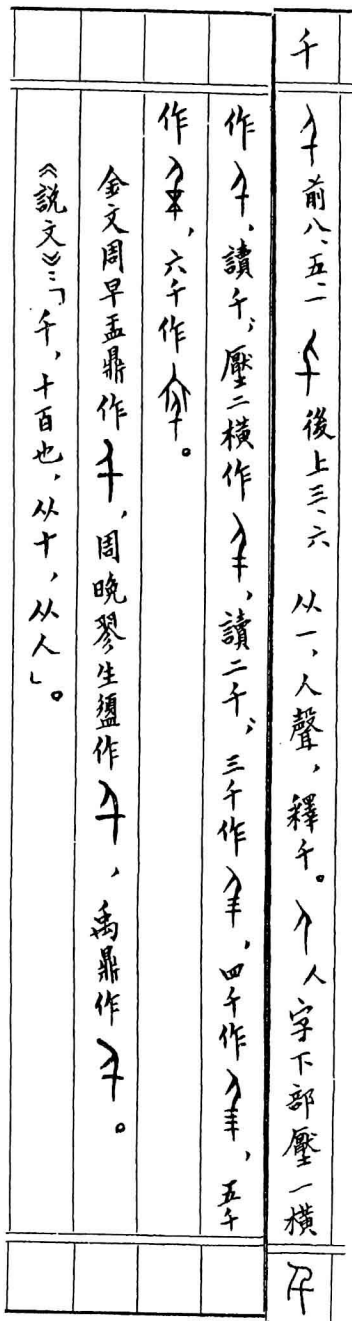 千
前八、五、一 後上三、六 从一，人聲，釋千。人字下部壓一橫
作，讀千，壓二橫作，讀二千，三千作，四千作，五千
作，六千作。
金文周早盂鼎作，周晚翏生盨作，禹鼎作。
《說文》：「千，十百也，从十，从人」。